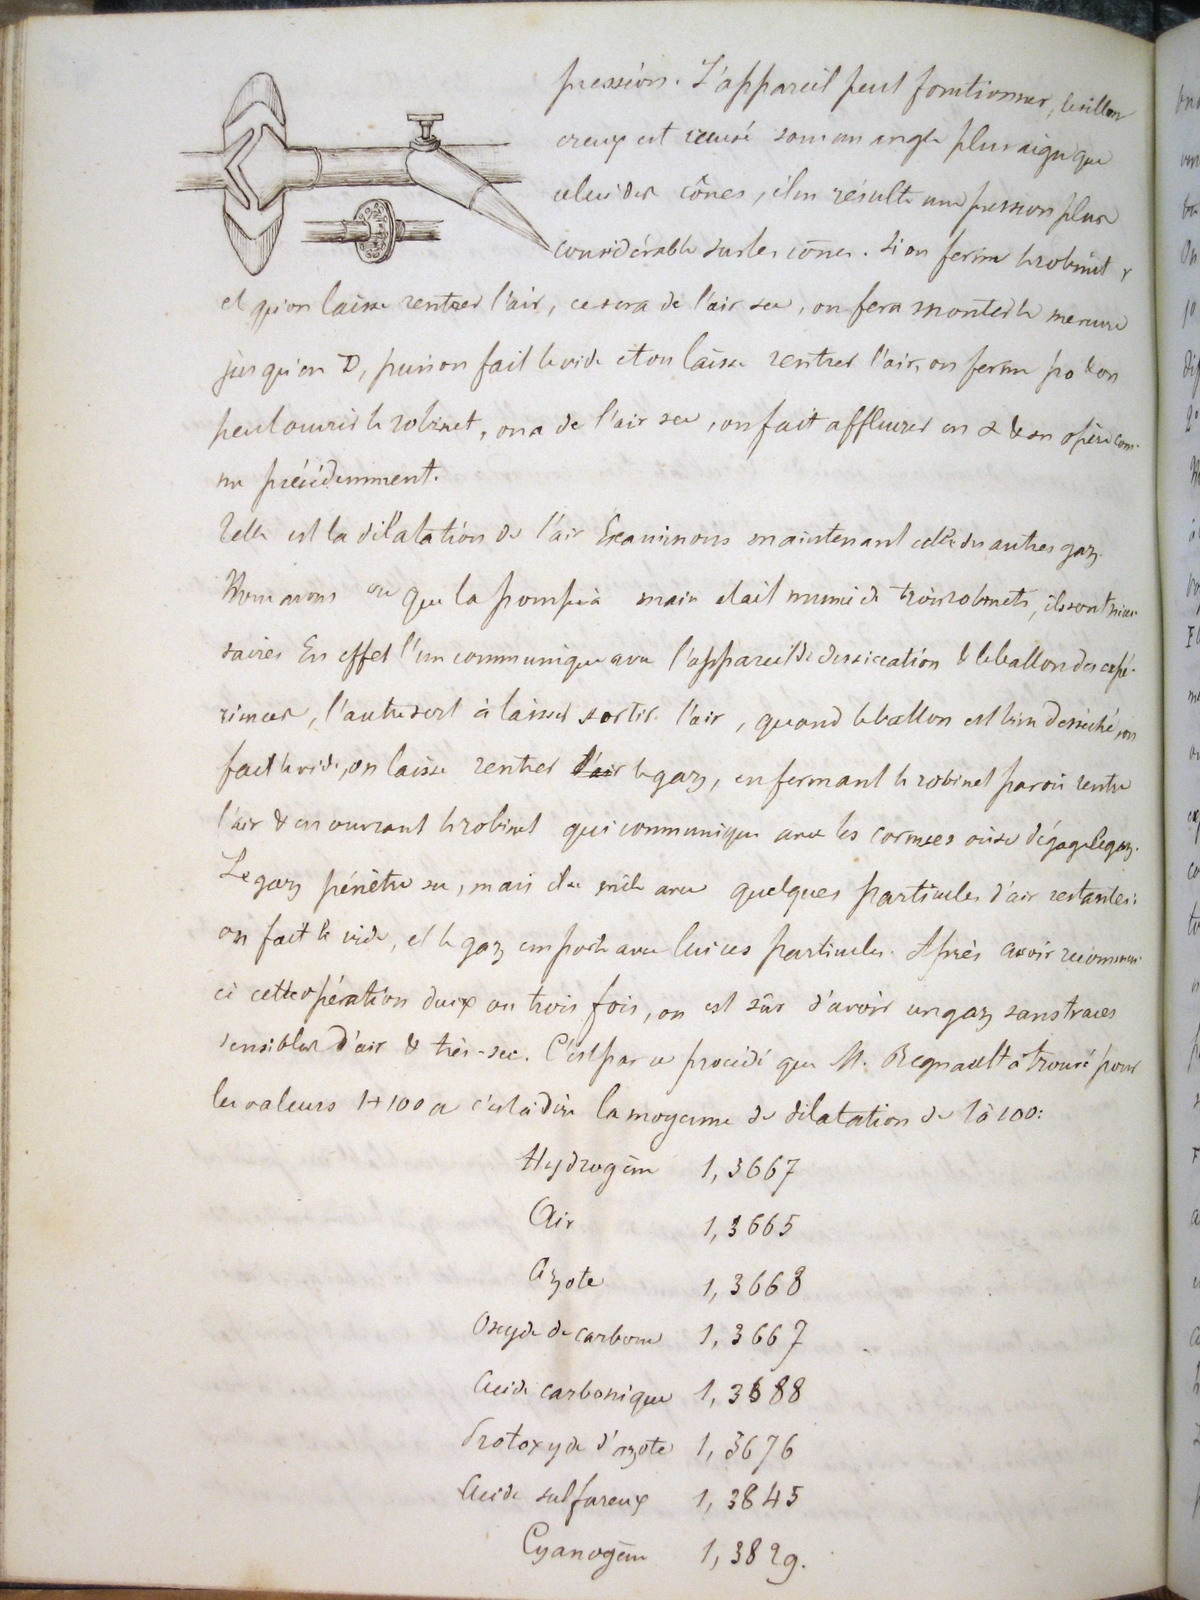 pression. L'appareil peut fonctionner, le sillon
creux est creusé sous un angle plus aigu que
celui des cônes, il en résulte une pression plus
considérable sur les cônes. Si on ferme le robinet r
et qu'on laisse rentrer l'air, ce sera de l'air sec, on fera monter le mercure
jusqu'en D, puis on fait le vide et on laisse rentrer l'air, on ferme & on
peut ouvrir le robinet, on a de l'air sec, on fait affleurer en α & on opère com-
me précédemment.
Telle est la dilatation de l'air Examinons maintenant celle des autres gaz.
Nous avons vu que la pompe à main était munie de trois robinets, ils sont néces-
saires En effet l'un communique avec l'appareil de dessiccation & le ballon des expé-
riences, l'autre sert à laisser sortir l'air, quand le ballon est bien desséché, on
fait le vide, on laisse rentrer l'air le gaz, en fermant le robinet par où rentre
l'air & en ouvrant le robinet qui communique avec les cornues où se dégage le gaz.
Le gaz pénètre sec, mais il se mêle avec quelques particules d'air restantes;
on fait le vide, et le gaz emporte avec lui ces particules. Après avoir recommen-
cé cette opération deux ou trois fois, on est sûr d'avoir un gaz sans traces
sensibles d'air & très-sec. C'est par ce procédé que M. Regnault a trouvé pour
les valeurs 1+100a c'est à dire la moyenne de dilatation de 1 à 100:
Hydrogène 1,3667
Air 1,3665
Azote 1,3668
Oxyde de carbone 1,3667
Acide carbonique 1,3688
Protoxyde d'azote 1,3676
Acide sulfureux 1,3845
Cyanogène 1,3829.